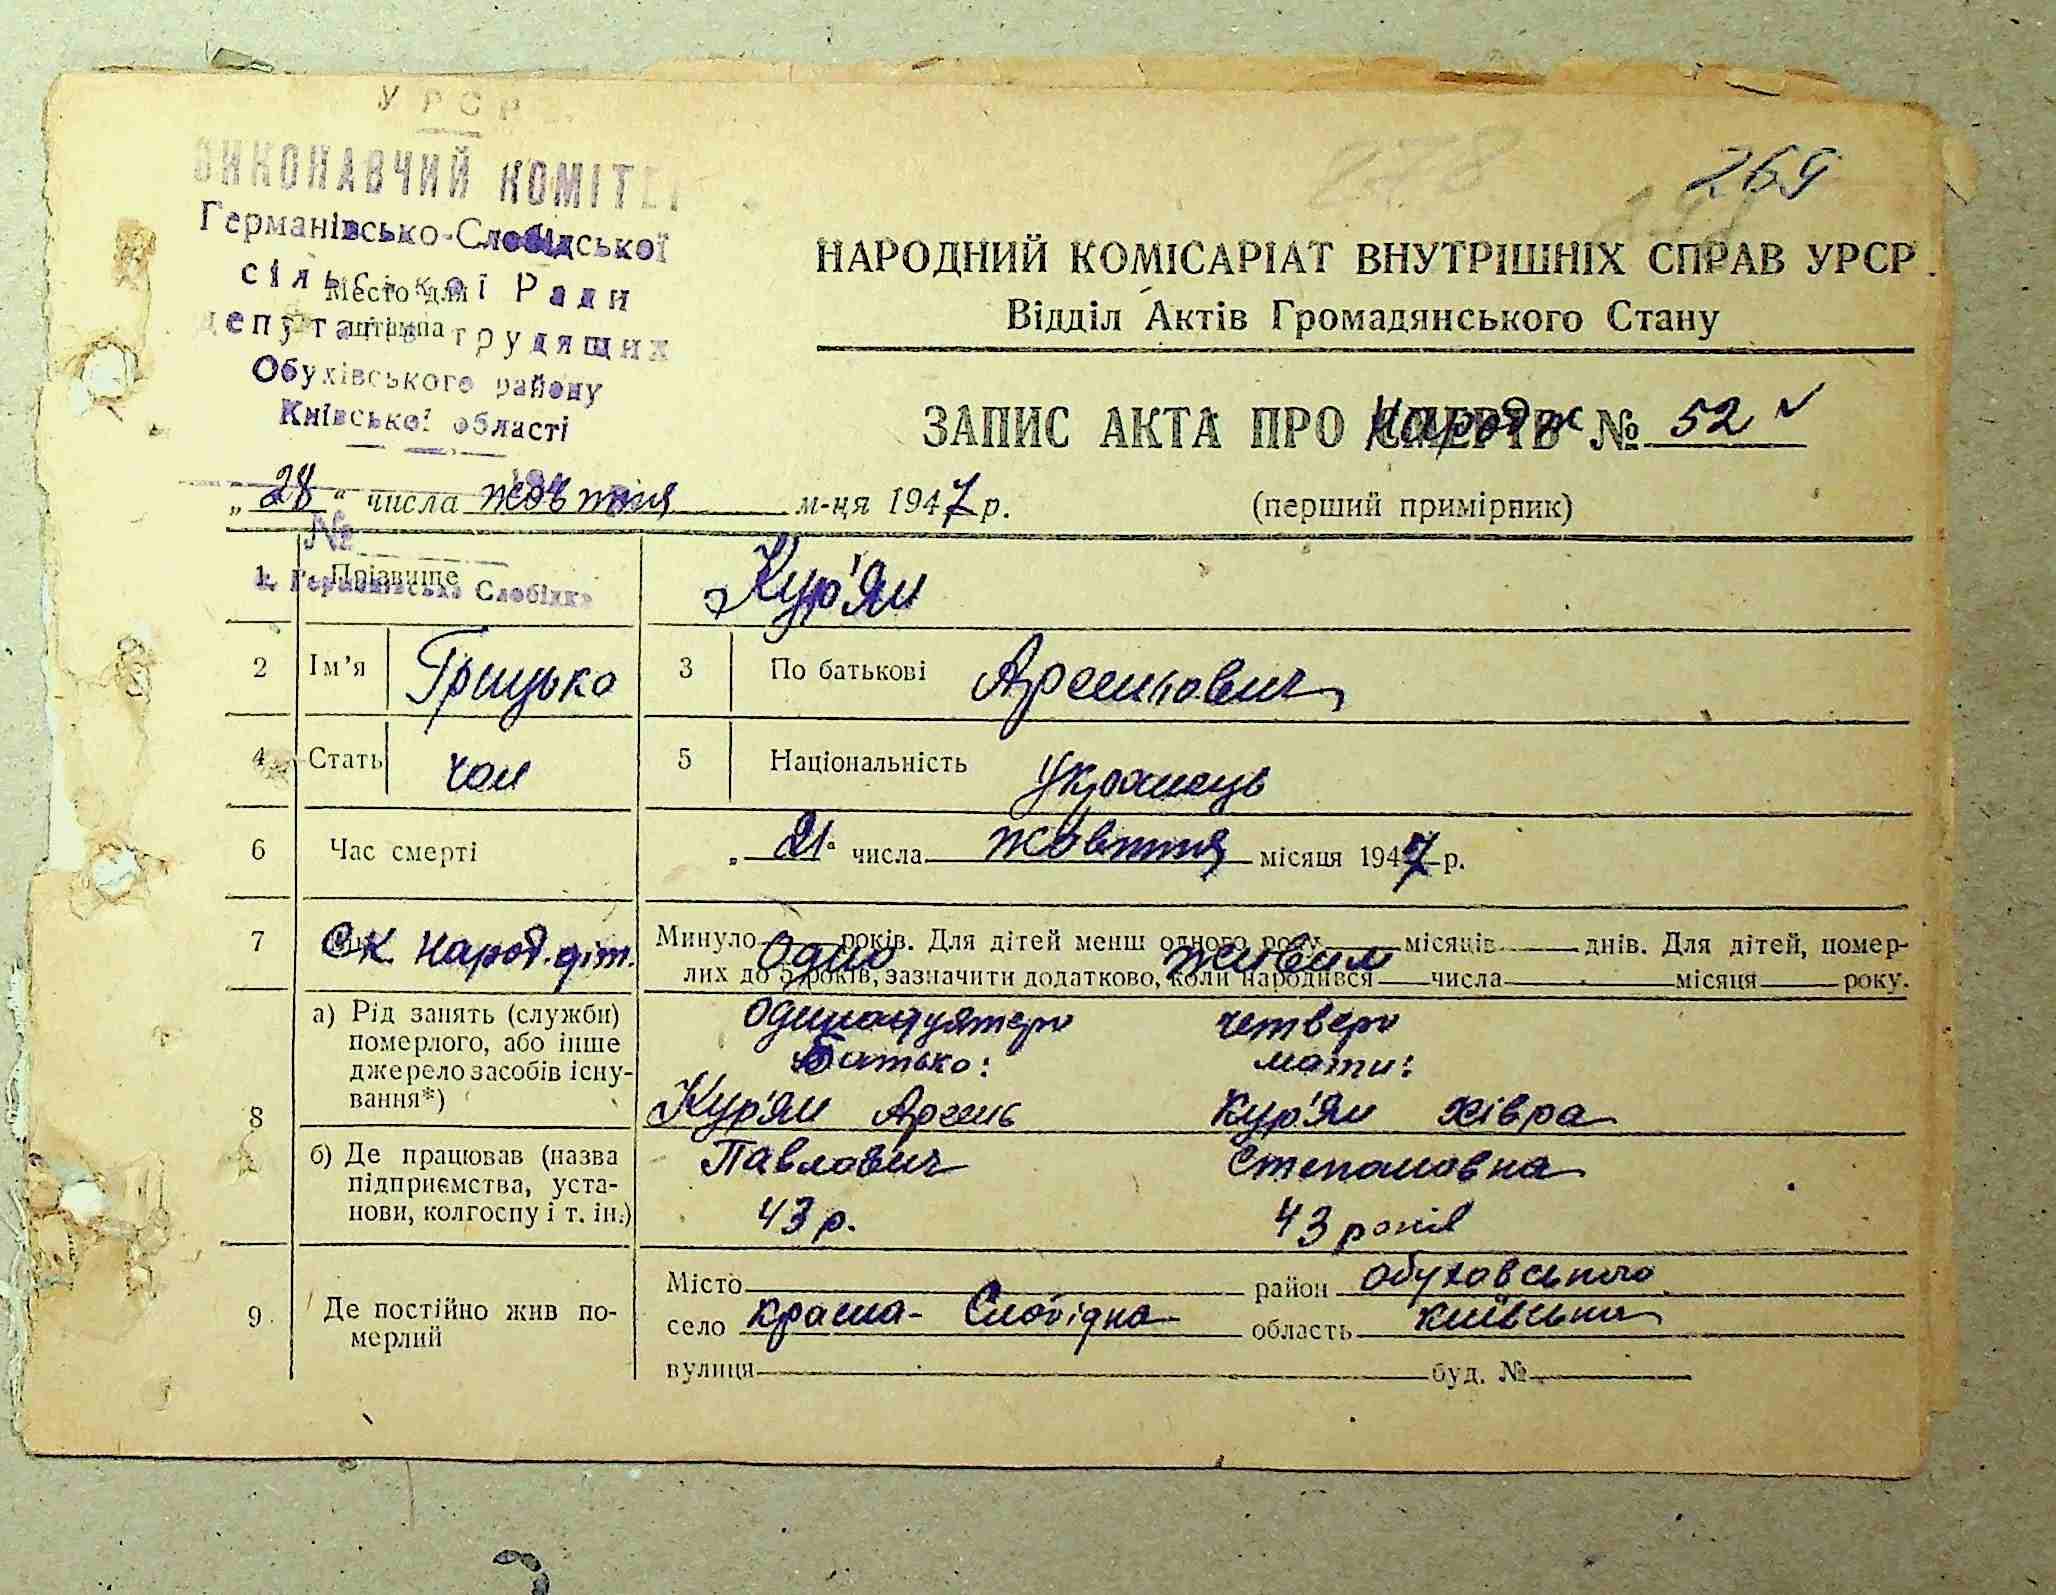 УРСР
ВИКОНАВЧИЙ КОМІТЕТ
Германівсько-Слобідської
сільської Ради
депутатів трудящих
Обухівського району
Київської області
Место для
штампа
№
с. Германівська Слобідка
278
269
НАРОДНИЙ КОМІСАРІАТ ВНУТРІШНІХ СПРАВ УРСР
Відділ Актів Громадянського Стану
ЗАПИС АКТА ПРО СМЕРТЬ нарож № 52
„28“ числа жовтня м-ця 1947 р.
(перший примірник)
1. Прізвище Кур'ян
2 Ім'я Грицько 3 По батькові Арсенович
4 Стать чол 5 Національність українець
6 Час смерті „21“ числа жовтня місяця 1947 р.
7 Ск. народ. діт. Минуло років. Для дітей менш одного року місяців днів. Для дітей, помер-
Одно живим
лих до 5 років, зазначити додатково, коли народився числа місяця року.
8 а) Рід занять (служби)
померлого, або інше
джерело засобів існу-
вання*)
одинадцятеро четверо
Батько: мати:
Кур'ян Арсень Кур'ян Хівра
б) Де працював (назва
підприємства, уста-
нови, колгоспу і т. ін.)
Павлович Степановна
43 р. 43 років
9 Де постійно жив по-
мерлий
Місто район Обуховського
село Красна-Слобідка область Київська
вулиця буд. №